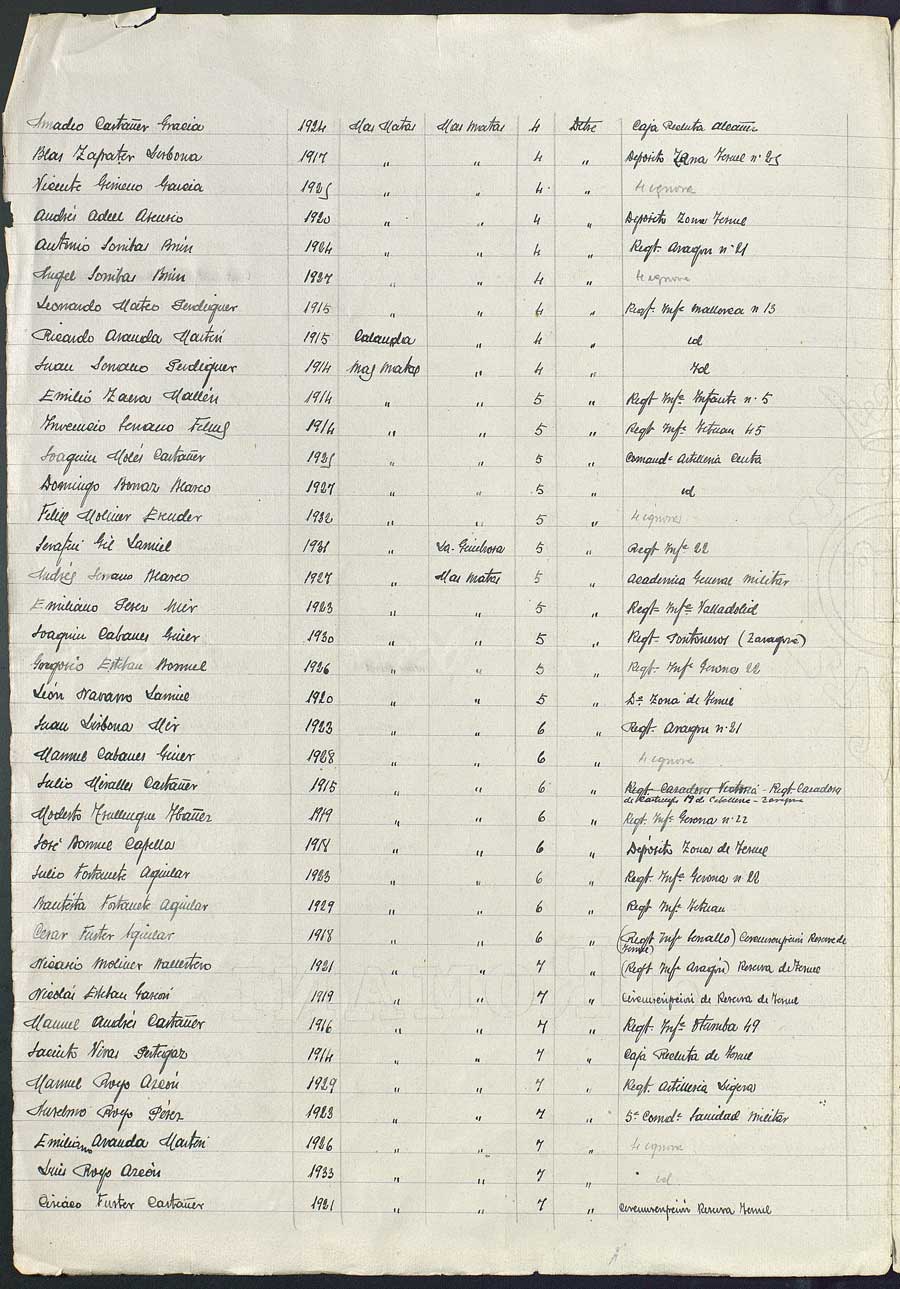 Amadeo Castañer Gracia 1924 Mas Matas Mas matas 4 Dtre Caja Recluta Alcañiz
Blas Zapater Lisbona 1917 " " 4 " Depósito Zona Teruel nº 25
Vicente Gimeno Garcia 1925 " " 4 " se ignora
Andrés Adell Asensio 1920 " " 4 " Depósito Zona Teruel
Antonio Sorribas Brun 1924 " " 4 " Regt. Aragon nº 21
Angel Sorribas Brun 1927 " " 4 " se ignora
Leonardo Mateo Perdiguer 1915 " " 4 " Regt. Infª Mallorca n 13
Ricardo Aranda Martin 1915 Calanda " 4 " id
Juan Serrano Perdiguer 1914 Mas Matas " 4 " Id
Emilio Zaera Mallén 1914 " " 5 " Regt Infª. Infante n. 5
Inocencio Serrano 1914 " " 5 " Regt Infª. Tetuan 45
Joaquin Molés Castañer 1925 " " 5 " Comandª Artilleria Ceuta
Domingo Bonaz Blasco 1927 " " 5 " id
Felix Moliner Escuder 1932 " " 5 " se ignora
Serafin Gil Lamiel 1931 " La Ginebrosa 5 " Regt Infª 22
Andrés Serrano Blasco 1927 " Mas Matas 5 " Academia General militar
Emiliano Perez Mir 1923 " " 5 " Regt- Infª Valladolid
Joaquin Cabanes Giner 1930 " " 5 " Regt- Pontoneros (Zaragoza)
Gregorio Esteban Monmel 1926 " " 5 " Regt- Infª Gerona 22
León Navarro Lamiel 1920 " " 5 " Dº Zona de Teruel
Juan Lisbona Mir 1923 " " 6 " Regt- Aragon nº 21
Manuel Cabanes Giner 1928 " " 6 " se ignora
Julio Miralles Castañer 1915 " " 6 " Regt- Cazadores Victoria - Regt. Cazadores
de Castillejos 19 de Caballeria - Zaragoza
Modesto Ibañez 1919 " " 6 " Regt. Infª Gerona nº 22
José Monmel Capella 1918 " " 6 " Depósito Zona de Teruel
Julio Fortanete Aguilar 1923 " " 6 " Regt- Infª Gerona nº 22
Bautista Fortanete Aguilar 1929 " " 6 " Regt Infª Tetuan
Cesar Fuster Aguilar 1918 " " 6 " (Regt Infª Serrallo) Circunscripción Reserva de
Teruel)
Nicasio Moliner Ballestero 1921 " " 7 " (Regt Infª Aragón) Reserva de Teruel
Nicolás Esteban Gascón 1919 " " 7 " Circunscripción de Reserva de Teruel
Manuel Andrés Castañer 1916 " " 7 " Regt- Infª Otumba 49
Jacinto Vivas Pertegaz 1914 " " 7 " Caja Recluta de Teruel
Manuel Royo Azcón 1929 " " 7 " Regt. Artilleria Ligera
Anselmo Royo Pérez 1923 " " 7 " 5ª Comdª Sanidad Militar
Emiliano Aranda Martin 1926 " " 7 " se ignora
Luis Royo Azcón 1933 " " 7 " id
Ciriaco Fuster Castañer 1921 " " 7 " Circunscripción Reserva Teruel